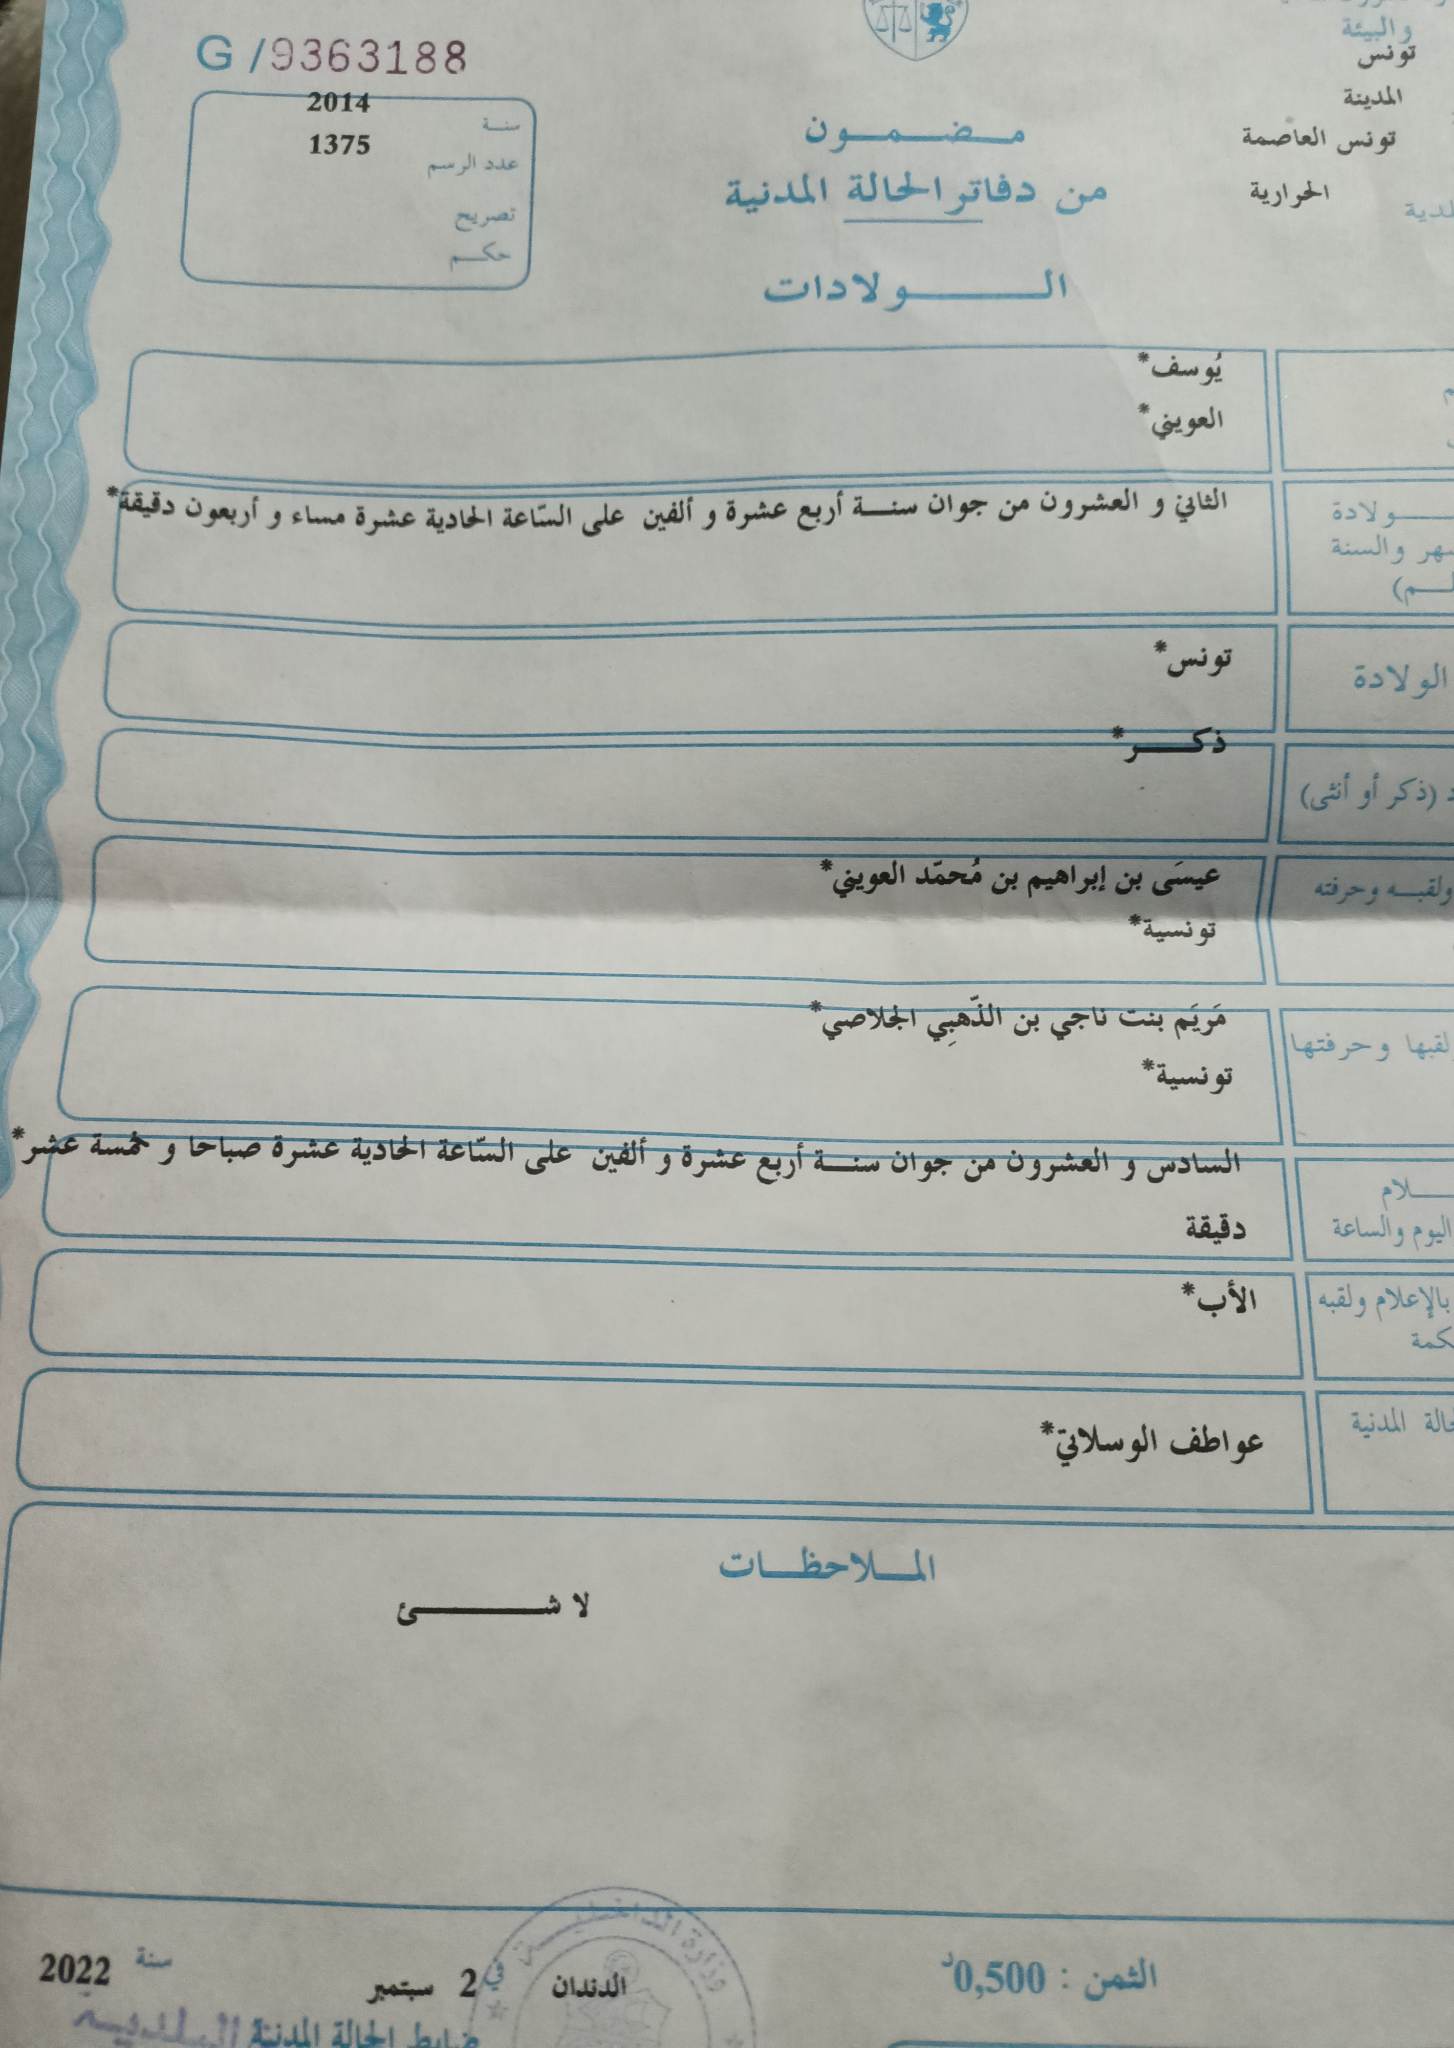 والبيئة
تونس
المدينة
تونس العاصمة
الحرارية
G / 9363188
سنة 2014
عدد الرسم 1375
تصريح
حكم
مضمون
من دفاتر الحالة المدنية
الولادات
يُوسف*
العويني*
ولادة
والسنة
الثاني و العشرون من جوان سنة أربع عشرة و ألفين على السّاعة الحادية عشرة مساء و أربعون دقيقة*
الولادة
تونس*
(ذكر أو أنثى)
ذكر*
ولقبه وحرفته
عيسَى بن إبراهيم بن مُحمّد العويني*
تونسية*
لقبها وحرفتها
مَريَم بنت ناجي بن الذّهبِي الجلاصي*
تونسية*
اليوم والساعة
السادس و العشرون من جوان سنة أربع عشرة و ألفين على السّاعة الحادية عشرة صباحا و خمسة عشر*
دقيقة
بالإعلام ولقبه
الأب*
المدنية
عواطف الوسلاتي*
الملاحظات
لا شئ
الثمن : 0,500د
الدندان في 2 سبتمبر سنة 2022
ضابط الحالة المدنية
وزارة الداخلية